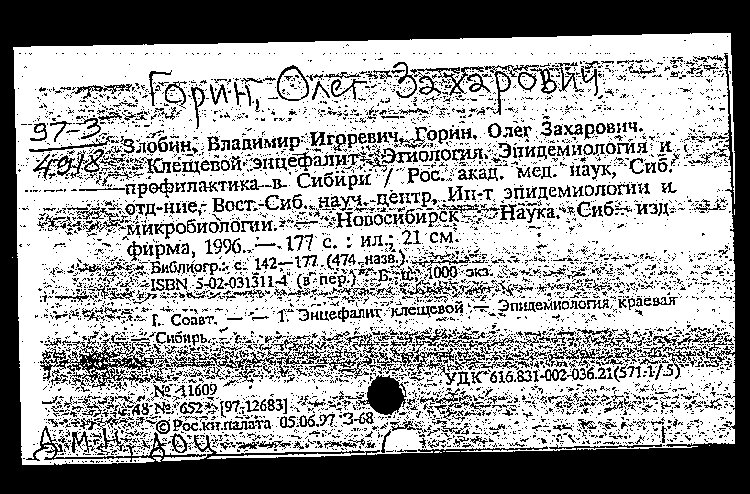 Горин, Олег Захарович
97-3
4918
Злобин, Владимир Игоревич, Горин, Олег Захарович.
Клещевой энцефалит: Этиология. Эпидемиология и
профилактика в Сибири / Рос. акад. мед. наук, Сиб.
отд-ние, Вост.-Сиб. науч. центр, Ин-т эпидемиологии и
микробиологии. — Новосибирск : Наука. Сиб. изд.
фирма, 1996. — 177 с. : ил.; 21 см.
Библиогр.: с. 142—177 (474 назв.).
ISBN 5-02-031311-4 (в пер.) Б. ц., 1000 экз.
I. Соавт. — — 1. Энцефалит клещевой — Эпидемиология краевая
Сибирь
УДК 616.831-002-036.21(571.1/.5)
№ 11609
48 № 652 [97-12683]
© Рос.кн.палата 05.06.97 З-68
Д.м.н., доц